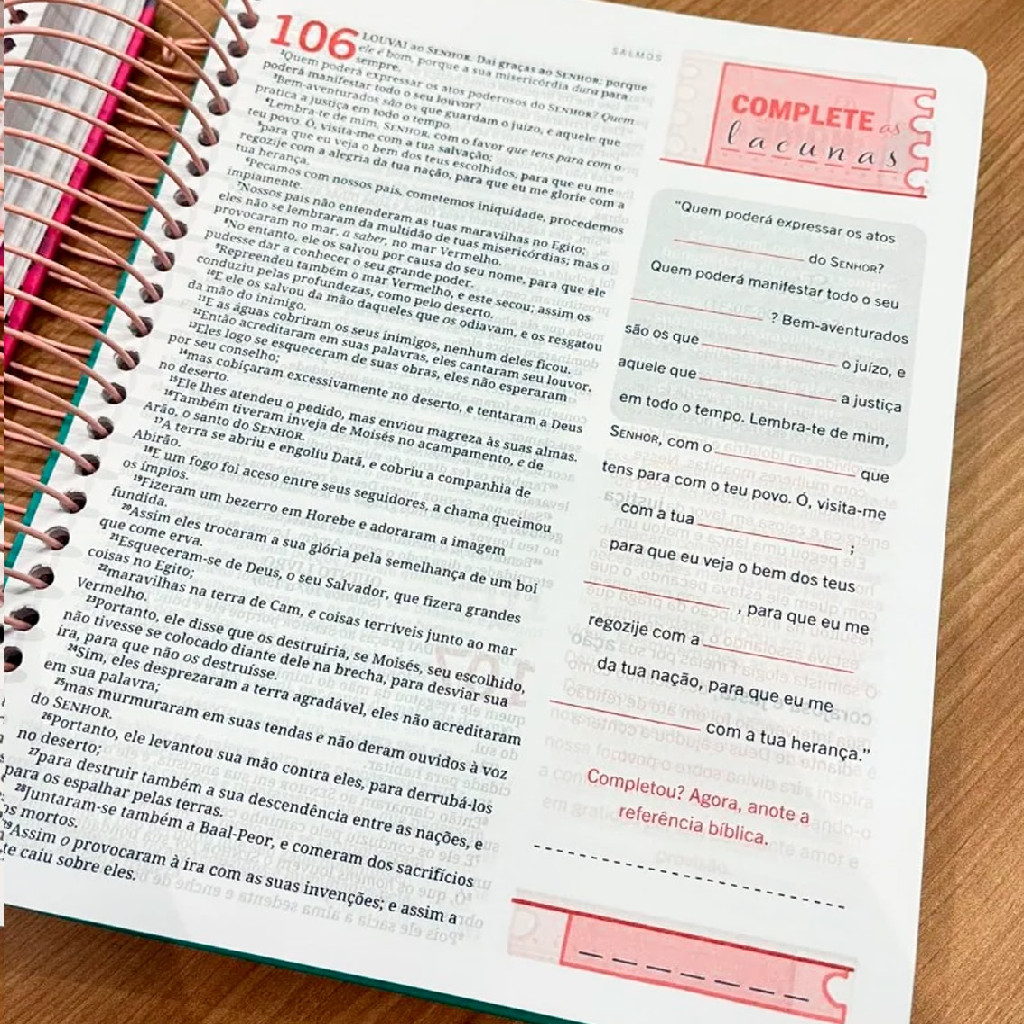 SALMOS
106 LOUVAI ao SENHOR. Dai graças ao SENHOR; porque
ele é bom, porque a sua misericórdia dura para
sempre.
²Quem poderá expressar os atos poderosos do SENHOR? Quem
poderá manifestar todo o seu louvor?
³Bem-aventurados são os que guardam o juízo, e aquele que
pratica a justiça em todo o tempo.
⁴Lembra-te de mim, SENHOR, com o favor que tens para com o
teu povo. Ó, visita-me com a tua salvação;
⁵para que eu veja o bem dos teus escolhidos, para que eu me
regozije com a alegria da tua nação, para que eu me glorie com a
tua herança.
⁶Pecamos com nossos pais, cometemos iniquidade, procedemos
impiamente.
⁷Nossos pais não entenderam as tuas maravilhas no Egito;
eles não se lembraram da multidão de tuas misericórdias; mas o
provocaram no mar, a saber, no mar Vermelho.
⁸No entanto, ele os salvou por causa do seu nome, para que ele
pudesse dar a conhecer o seu grande poder.
⁹Repreendeu também o mar Vermelho, e este secou; assim os
conduziu pelas profundezas, como pelo deserto.
¹⁰E ele os salvou da mão daqueles que os odiavam, e os resgatou
da mão do inimigo.
¹¹E as águas cobriram os seus inimigos, nenhum deles ficou.
¹²Então acreditaram em suas palavras, eles cantaram seu louvor.
¹³Eles logo se esqueceram de suas obras, eles não esperaram
por seu conselho;
¹⁴mas cobiçaram excessivamente no deserto, e tentaram a Deus
no deserto.
¹⁵Ele lhes atendeu o pedido, mas enviou magreza às suas almas.
¹⁶Também tiveram inveja de Moisés no acampamento, e de
Arão, o santo do SENHOR.
¹⁷A terra se abriu e engoliu Datã, e cobriu a companhia de
Abirão.
¹⁸E um fogo foi aceso entre seus seguidores, a chama queimou
os ímpios.
¹⁹Fizeram um bezerro em Horebe e adoraram a imagem
fundida.
²⁰Assim eles trocaram a sua glória pela semelhança de um boi
que come erva.
²¹Esqueceram-se de Deus, o seu Salvador, que fizera grandes
coisas no Egito;
²²maravilhas na terra de Cam, e coisas terríveis junto ao mar
Vermelho.
²³Portanto, ele disse que os destruiria, se Moisés, seu escolhido,
não tivesse se colocado diante dele na brecha, para desviar sua
ira, para que não os destruísse.
²⁴Sim, eles desprezaram a terra agradável, eles não acreditaram
em sua palavra;
²⁵mas murmuraram em suas tendas e não deram ouvidos à voz
do SENHOR.
²⁶Portanto, ele levantou sua mão contra eles, para derrubá-los
no deserto;
²⁷para destruir também a sua descendência entre as nações, e
para os espalhar pelas terras.
²⁸Juntaram-se também a Baal-Peor, e comeram dos sacrifícios
os mortos.
²⁹Assim o provocaram à ira com as suas invenções; e assim a
te caiu sobre eles.
COMPLETE as
lacunas
"Quem poderá expressar os atos
____ do SENHOR?
Quem poderá manifestar todo o seu
____ ? Bem-aventurados
são os que ____ o juízo, e
aquele que ____ a justiça
em todo o tempo. Lembra-te de mim,
SENHOR, com o ____ que
tens para com o teu povo. Ó, visita-me
com a tua ____ ;
para que eu veja o bem dos teus
____ , para que eu me
regozije com a ____
da tua nação, para que eu me
____ com a tua herança."
Completou? Agora, anote a
referência bíblica.